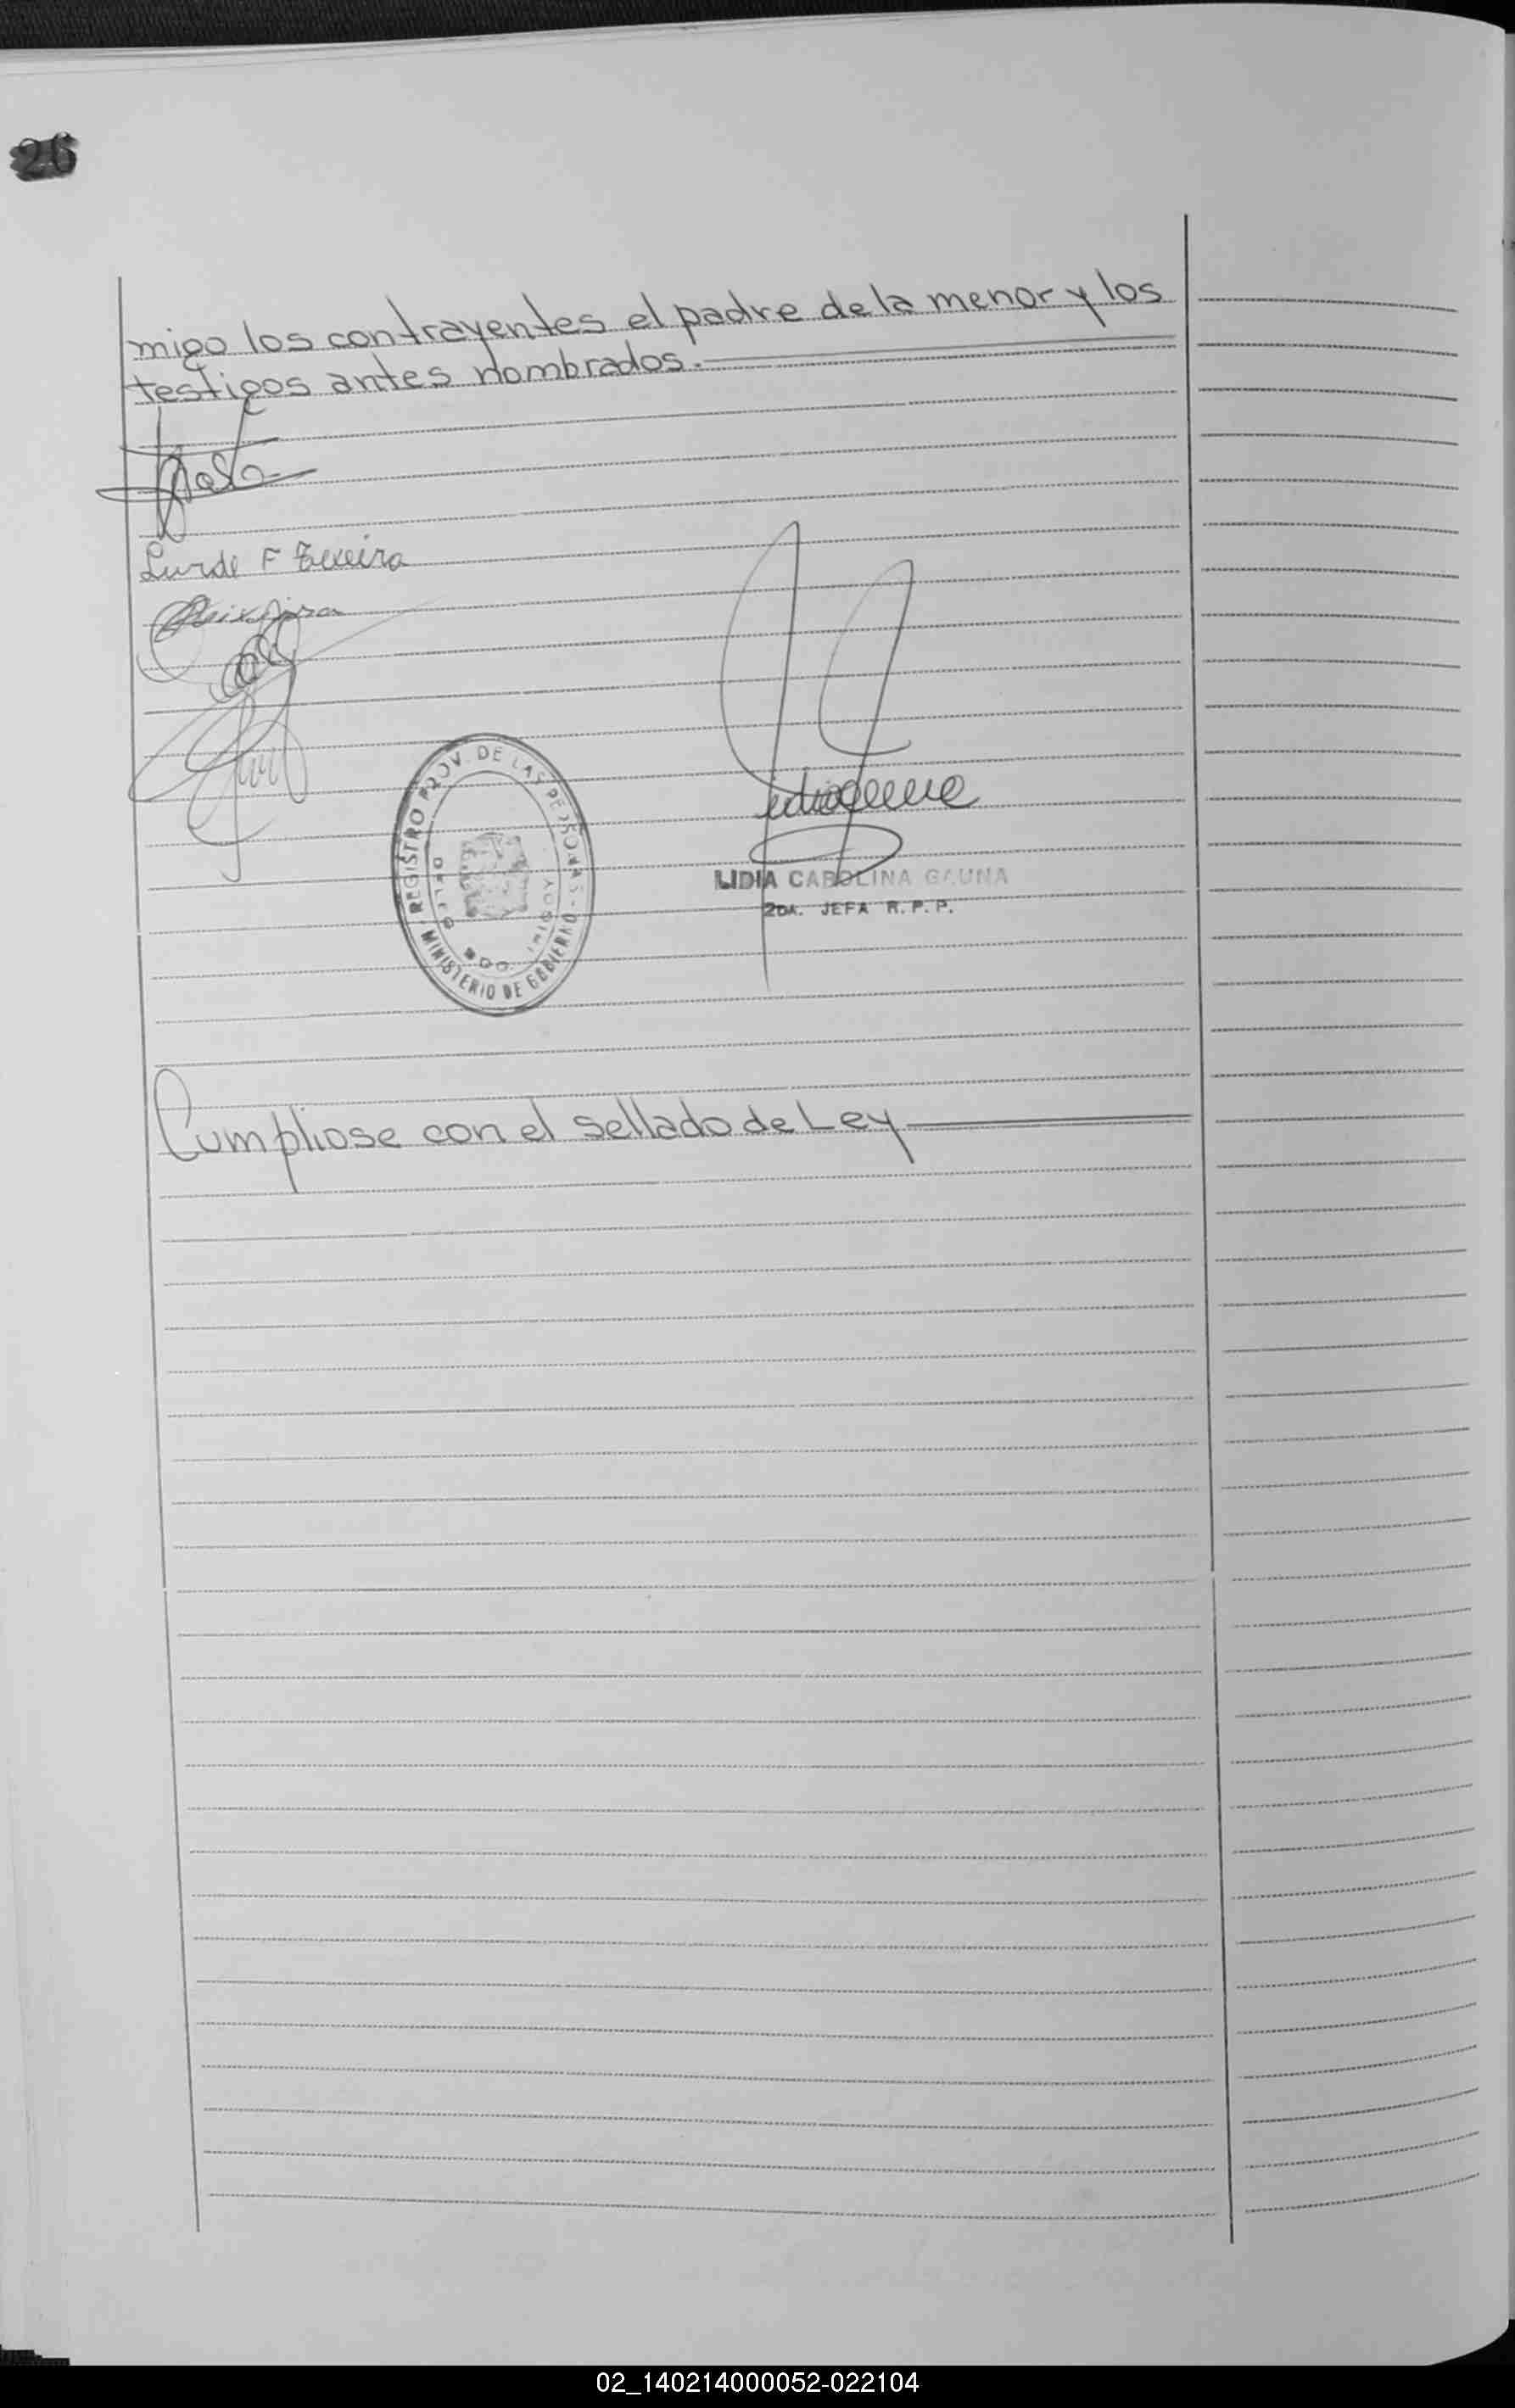 26
migo los contrayentes el padre de la menor y los
testigos antes nombrados.
Lurde F
REGISTRO PROV. DE LAS PERSONAS - MINISTERIO DE GOBIERNO
LIDIA CAROLINA GAUNA
2DA. JEFA R.P.P.
Cumpliose con el sellado de Ley
02_140214000052-022104